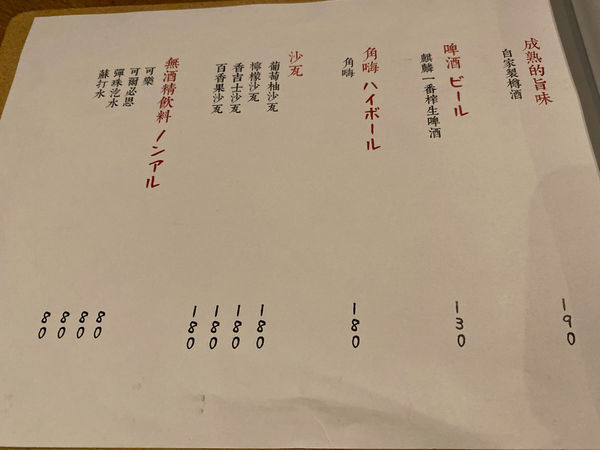 成熟的旨味
自家製樽酒 190
啤酒 ビール
麒麟一番榨生啤酒 130
角嗨 ハイボール
角嗨 180
沙瓦
葡萄柚沙瓦 180
檸檬沙瓦 180
香吉士沙瓦 180
百香果沙瓦 180
無酒精飲料 ノンアル
可樂 80
可爾必思 80
彈珠汽水 80
蘇打水 80